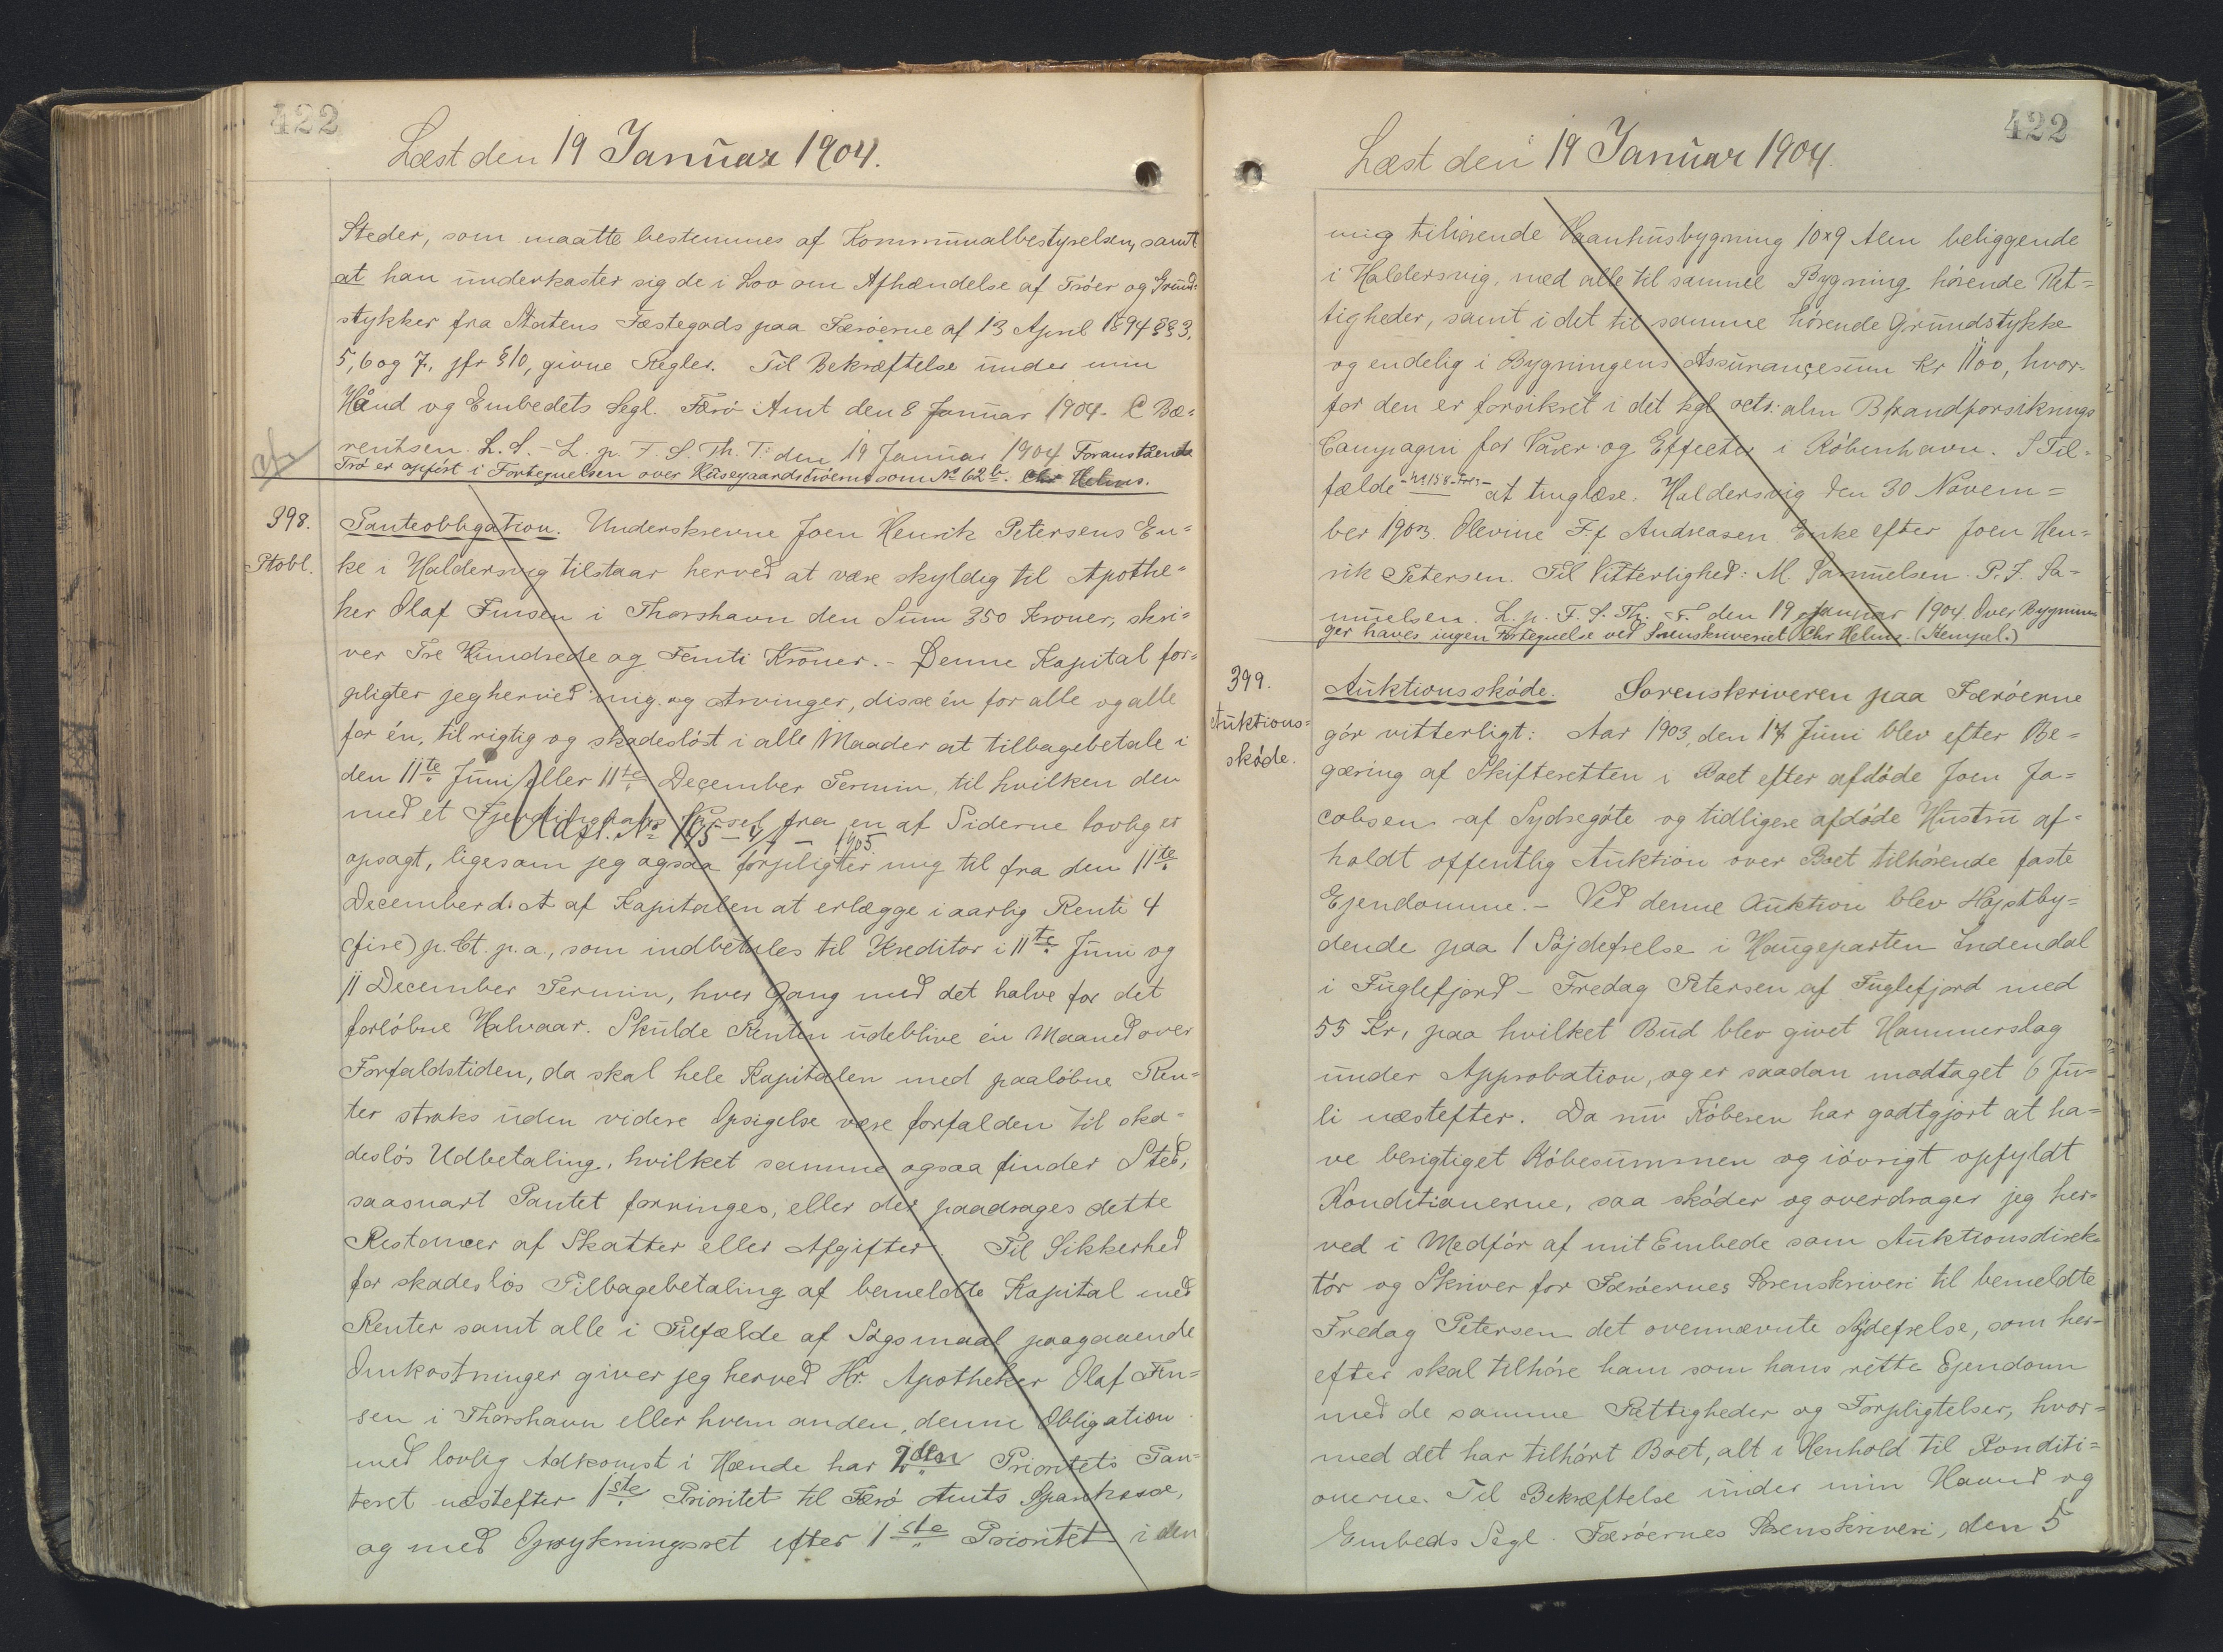 422
Læst den 19 Januar 1904.
Steder, som maatte bestemmes af Kommunalbestyrelsen, samt
at han underkaster sig de i Lov om Afhændelse af Tróer og Grund-
stykker fra Statens Fæstegods paa Færóerne af 13 April 1894 §§ 3,
5, 6 og 7, jfr § 10, givne Regler. Til Bekræftelse under min
Hånd og Embedets Segl. Færó Amt den 8 Januar 1904. C Bæ=
rentsen. L. S. - L. p. F. S. Th. T. den 19 Januar 1904 Foranstaaende
Tró er opfórt i Fortegnelsen over Húsegaardstróerne som No 62 b. Chr Helms.
398.
Ptobl.
Panteobligation. Underskrevne Joen Henrik Petersens En=
ke i Haldersvig tilstaar herved at være skyldig til Apothe=
ker Olaf Finsen i Thorshavn den Sum 350 Kroner, skri=
ver Tre Hundrede og Femti Kroner. - Denne Kapital for=
pligter jeg herved mig og Arvinger, disse én for alle og alle
for én, til rigtig og skadesløst i alle Maader at tilbagebetale i
den 11te Juni eller 11te December Termin, til hvilken den
med et Fjerdingaars Varsel fra en af Siderne lovlig er
Udsl. No 195 - 4/4 - 1905
opsagt, ligesom jeg ogsaa forpligter mig til fra den 11te
December d. A. af Kapitalen at erlægge i aarlig Rente 4
(fire) p. Ct. p. a., som indbetales til Kreditor i 11te Juni og
11 December Termin, hver Gang med det halve for det
forlóbne Halvaar. Skulde Renten udeblive én Maaned over
Forfaldstiden, da skal hele Kapitalen med paalóbne Ren=
ter straks uden videre Opsigelse være forfalden til ska=
deslós Udbetaling, hvilket samme ogsaa finder Sted,
saasnart Pantet forringes, eller der paadrages dette
Restancer af Skatter eller Afgifter. Til Sikkerhed
for skadeslós Tilbagebetaling af bemeldte Kapital med
Renter samt alle i Tilfælde af Ságsmaal paagaaende
Omkostninger giver jeg herved Hr. Apotheker Olaf Fin=
sen i Thorshavn eller hvem anden, denne Obligation
med lovlig Adkomst i Hænde har 2den Prioritets Pan=
teret næstefter 1ste Prioritet til Færó Amts Sparekasse,
og med Oprykningsret efter 1ste Prioritet i den
422
Læst den 19 Januar 1904
mig tilhórende Vaanhusbygning 10x9 Alen beliggende
i Haldersvig, med alle til samme Bygning hórende Ret=
tigheder, samt i det til samme hórende Grundstykke
og endelig i Bygningens Assurançesum Kr 1100, hvor=
for den er forsikret i det kgl octr. alm Brandforsikrings
Compagni for Varer og Effecter i Kóbenhavn. S Til=
fælde at tinglæse. Haldersvig den 30 Novem=
ber 1903. Olevine F. f Andreasen Enke efter Joen Hen=
rik Petersen. Til Vitterlighed: M. Samuelsen. P. J. Sa=
muelsen. L. p. F. S. Th. T. den 19 Januar 1904. Over Bygnin=
ger haves ingen Fortegnelse ved Sorenskriveriet Chr Helms. (Stempel.)
399.
Auktions=
skóde.
Auktionsskóde. Sorenskriveren paa Færóerne
gór vitterligt: Aar 1903, den 17 Juni blev efter Be=
gæring af Skifteretten i Boet efter afdóde Joen Ja=
cobsen af Sydregóte og tidligere afdóde Hustru af=
holdt offentlig Auktion over Boet tilhórende faste
Ejendomme. - Ved denne Auktion blev Hójstby=
dende paa 1 Sójdefrelse i Haugeparten Indendal
i Fuglefjord - Fredag Petersen af Fuglefjord med
55 Kr, paa hvilket Bud blev givet Hammerslag
under Approbation, og er saadan modtaget 6 Ju=
li næstefter. Da nu Kóberen har godtgjort at ha=
ve berigtiget Kóbesummen og ióvrigt opfyldt
Konditionerne, saa skóder og overdrager jeg her=
ved i Medfór af mit Embede som Auktionsdirek=
tór og Skriver for Færóernes Sorenskriveri til bemeldte
Fredag Petersen det ovennævnte Sójdefrelse, som her=
efter skal tilhóre ham som hans rette Ejendom
med de samme Rettigheder og Forpligtelser, hvor=
med det har tilhórt Boet, alt i Henhold til Konditi=
onerne. Til Bekræftelse under min Haand og
Embeds Segl. Færóernes Sorenskriveri, den 5